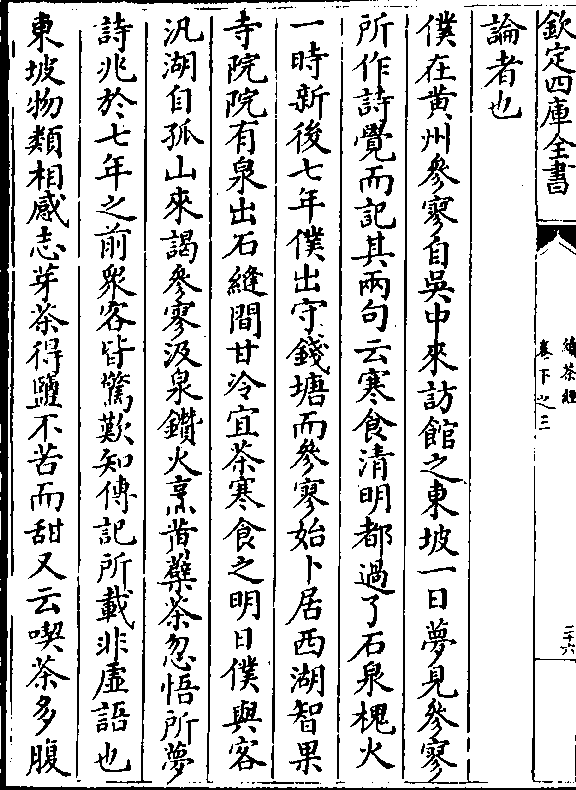 欽定四庫全書
續茶經
卷下之三
二十六
論者也
僕在黃州參寥自吳中來訪館之東坡一日夢見參寥
所作詩覺而記其兩句云寒食清明都過了石泉槐火
一時新後七年僕出守錢塘而參寥始卜居西湖智果
寺院院有泉出石縫間甘冷宜茶寒食之明日僕與客
汎湖自孤山來謁參寥汲泉鑽火烹黃蘗茶忽悟所夢
詩兆於七年之前衆客皆驚歎知傳記所載非虛語也
東坡物類相感志芽茶得鹽不苦而甜又云喫茶多腹